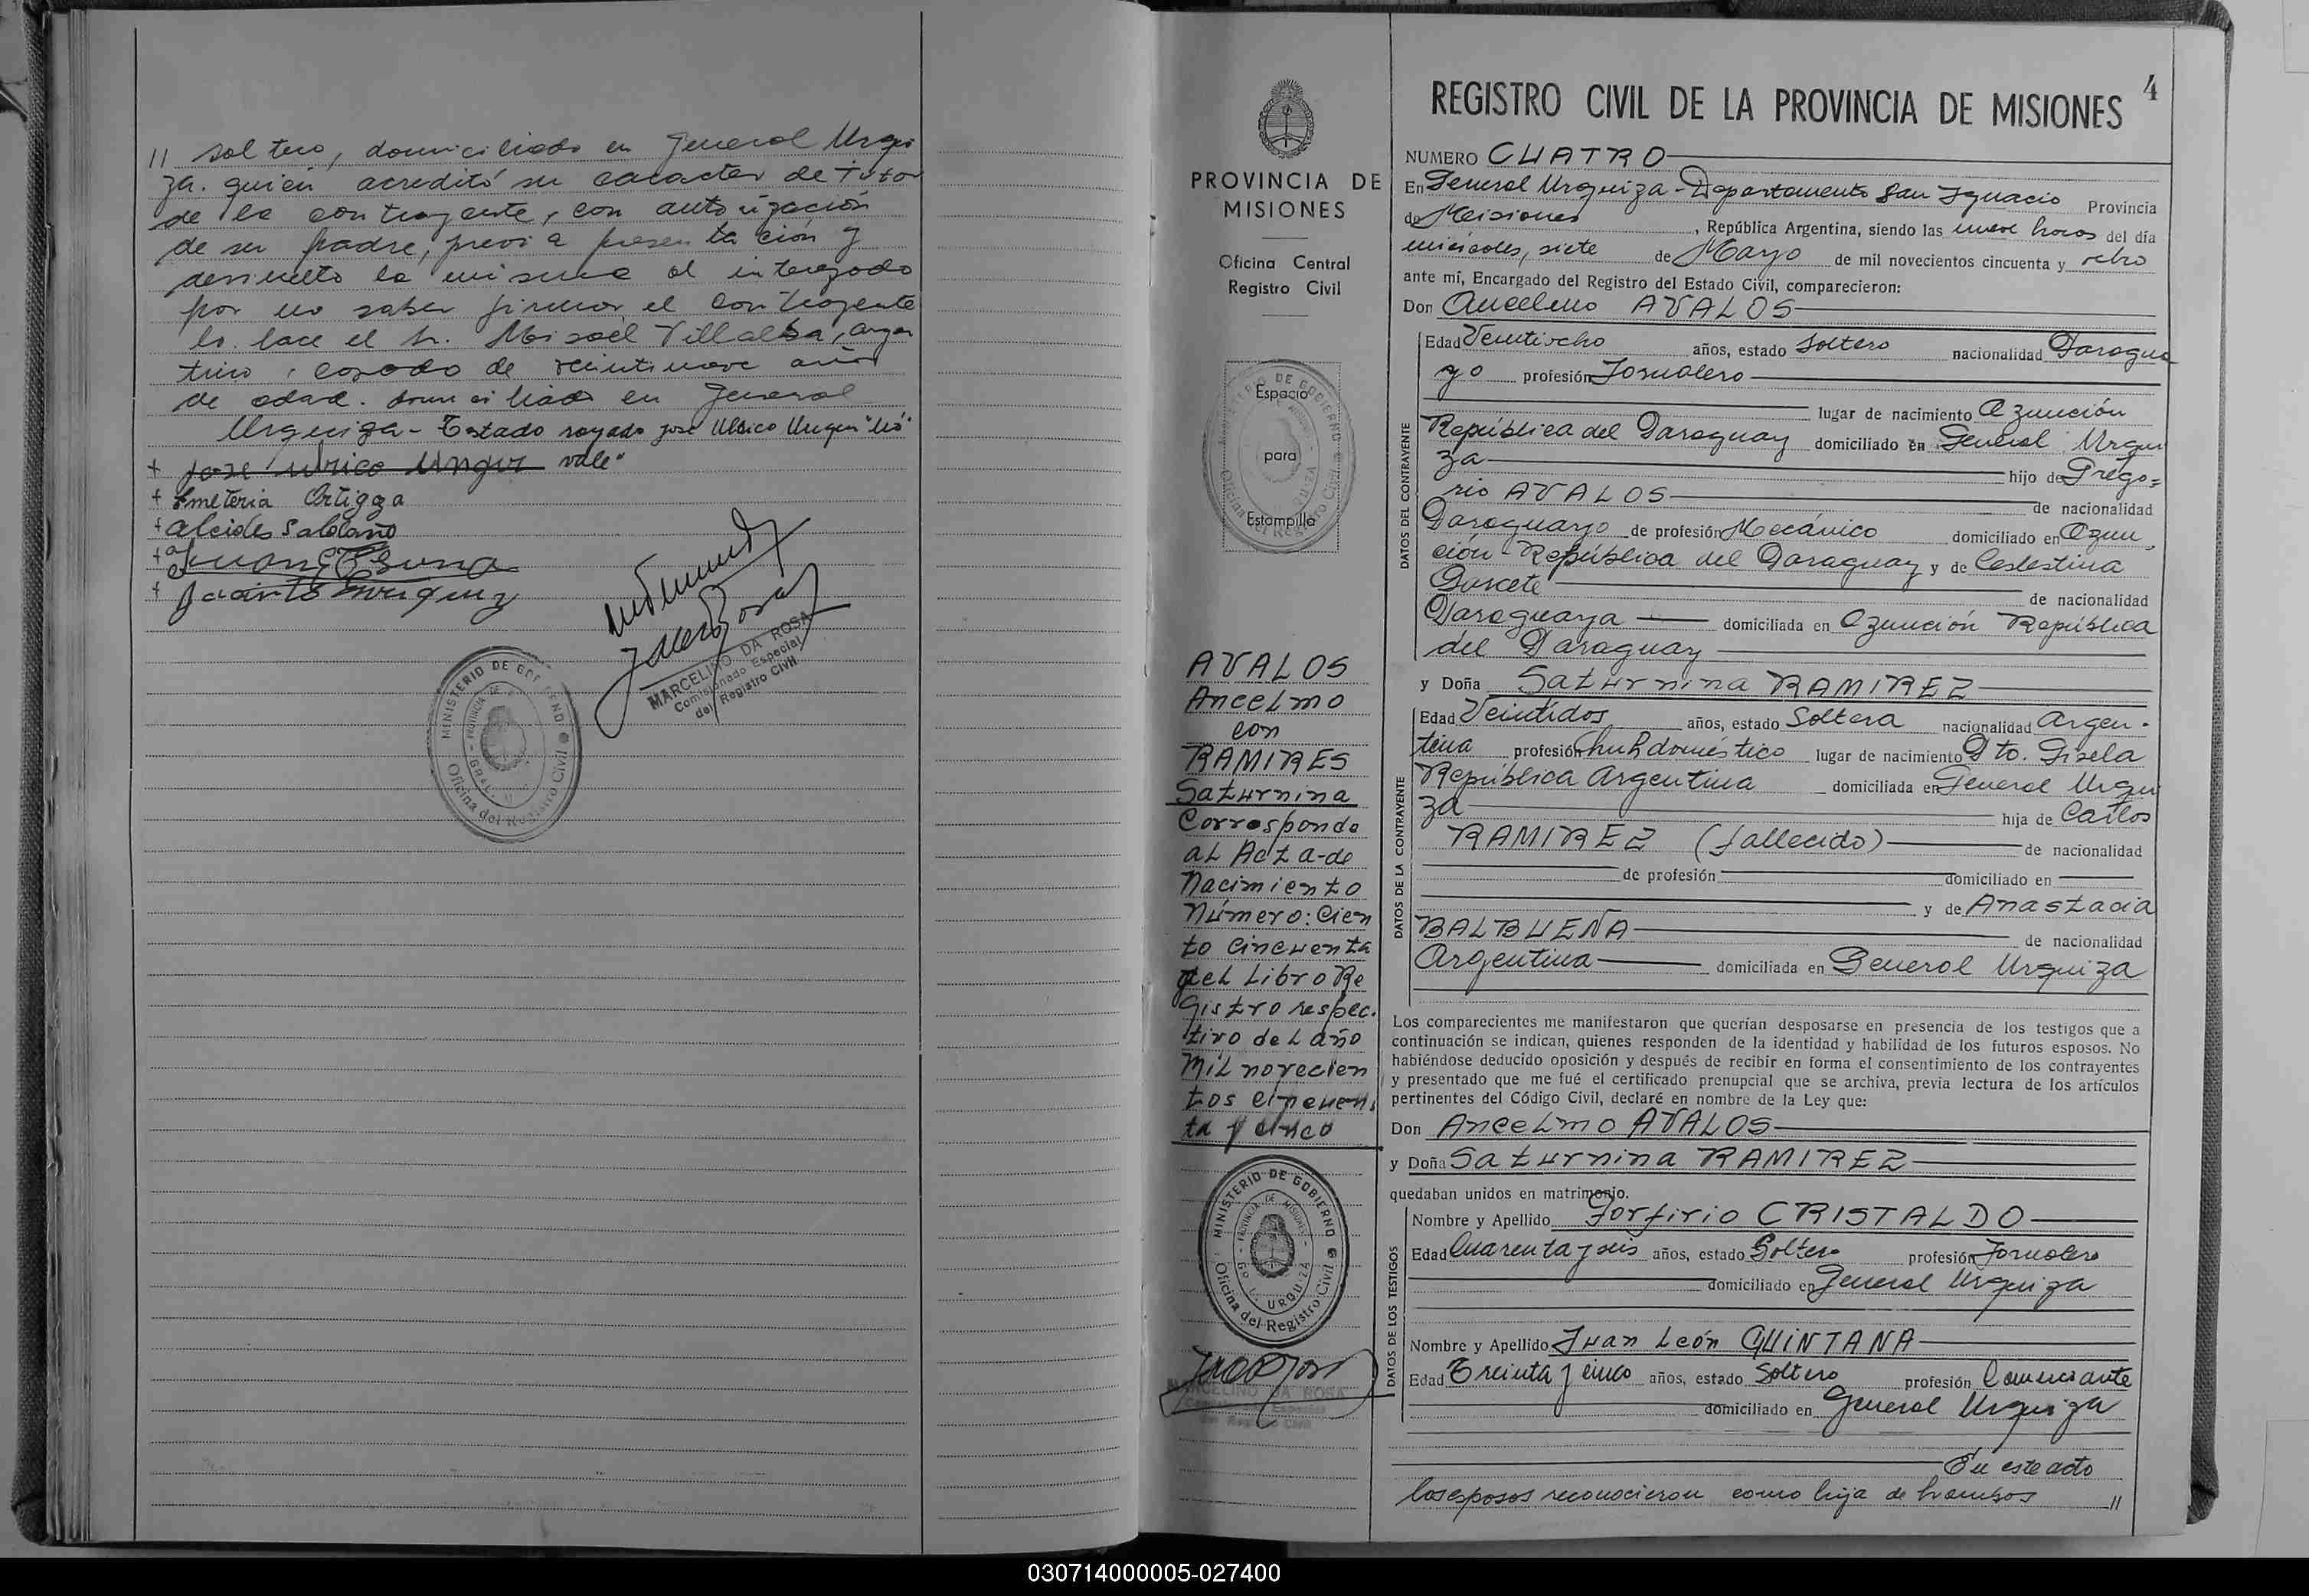 // soltero, domiciliado en General Urqui
za. quien acreditó su caracter de tutor
de la contrayente, con autorización
de su padre, previa presentación y
desvuelto la misma al interezado
por no saber firmar el contrayente
lo hace el Sr. Misael Villalba, argen
tino, casado de veintinueve años
de edad. domiciliado en General
Urquiza - Testado rayado José Ulrico Unger "No"
+ José Ulrico Unger vale"
+ Emeteria Ortigoza
+ Alcides Saldaño
+ Juan
+ Jacinto
MARCELINO DA ROSA
Comisionado Especial
del Registro Civil
MINISTERIO DE GOBIERNO
PROVINCIA DE
Oficina del Registro Civil
PROVINCIA DE
MISIONES
Oficina Central
Registro Civil
Espacio
para
Estampilla
AVALOS
Ancelmo
con
RAMIRES
Saturnina
Corresponde
al Acta-de
Nacimiento
Número: Cien
to cincuenta
del Libro Re
gistro respec.
tivo del año
Mil novecien
tos cincuen
ta y cinco
MINISTERIO DE GOBIERNO
PROVINCIA DE MISIONES
GRAL. URQUIZA
Oficina del Registro Civil
MARCELINO DA ROSA
Comisionado Especial
del Registro Civil
4
REGISTRO CIVIL DE LA PROVINCIA DE MISIONES
NUMERO CUATRO
En General Urquiza - Departamento San Ignacio Provincia
de Misiones, República Argentina, siendo las nueve horas del día
miércoles, siete de Mayo de mil novecientos cincuenta y ocho
ante mí, Encargado del Registro del Estado Civil, comparecieron:
Don Ancelmo AVALOS
DATOS DEL CONTRAYENTE
Edad Veintiocho años, estado Soltero nacionalidad Paragua
yo profesión Jornalero
lugar de nacimiento Azunción
República del Paraguay domiciliado en General Urqui
za hijo de Grego=
rio AVALOS de nacionalidad
Paraguayo de profesión Mecánico domiciliado en Azun
ción - República del Paraguay y de Celestina
de nacionalidad
Paraguaya domiciliada en Azunción República
del Paraguay
y Doña Saturnina RAMIREZ
DATOS DE LA CONTRAYENTE
Edad Veintidos años, estado Soltera nacionalidad Argen-
tina profesión doméstico lugar de nacimiento Pto. Gisela
República Argentina domiciliada en General Urqui
za hija de Carlos
RAMIREZ (fallecido) de nacionalidad
de profesión domiciliado en
y de Anastacia
BALBUENA de nacionalidad
Argentina domiciliada en General Urquiza
Los comparecientes me manifestaron que querían desposarse en presencia de los testigos que a
continuación se indican, quienes responden de la identidad y habilidad de los futuros esposos. No
habiéndose deducido oposición y después de recibir en forma el consentimiento de los contrayentes
y presentado que me fué el certificado prenupcial que se archiva, previa lectura de los artículos
pertinentes del Código Civil, declaré en nombre de la Ley que:
Don Ancelmo AVALOS
y Doña Saturnina RAMIREZ
quedaban unidos en matrimonio.
DATOS DE LOS TESTIGOS
Nombre y Apellido Porfirio CRISTALDO
Edad Cuarenta y seis años, estado Soltero profesión Jornalero
domiciliado en General Urquiza
Nombre y Apellido Juan León QUINTANA
Edad Treinta y cinco años, estado Soltero profesión Comerciante
domiciliado en General Urquiza
En este acto
los esposos reconocieron como hija de hambos //
030714000005-027400